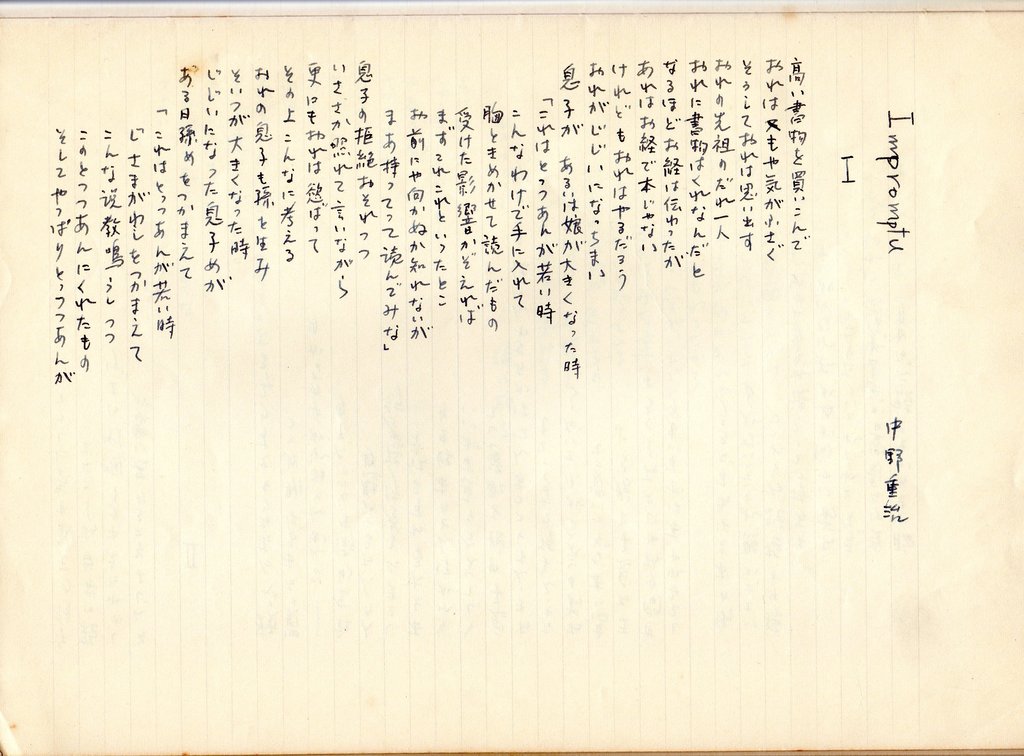 Impromptu
中野重治
I
高い書物を買いこんで
おれは又もや気が小さく
そうしておれは思い出す
おれの先祖のだれ一人
おれに書物はくれなんだと
なるほどお経は伝わったが
あれはお経で本じゃない
けれどもおれはやるだろう
おれがじじいになっちまい
息子が あるいは娘が大きくなった時
「これはとっつあんが若い時
こんなわけで手に入れて
胸ときめかせて読んだもの
受けた影響かぞえれば
まずこれこれといったとこ
お前にや向かぬか知れないが
まあ持ってって読んでみな」
息子の拒絶おそれつつ
いささか照れて言いながら
更にもおれは慾ばって
その上こんなに考える
おれの息子も孫を生み
そいつが大きくなった時
じじいになった息子めが
ある日孫めをつかまえて
「これはとっつあんが若い時
じさまがわしをつかまえて
こんな説教鳴らしつつ
このとっつあんにくれたもの
そしてやっぱりとっつあんが